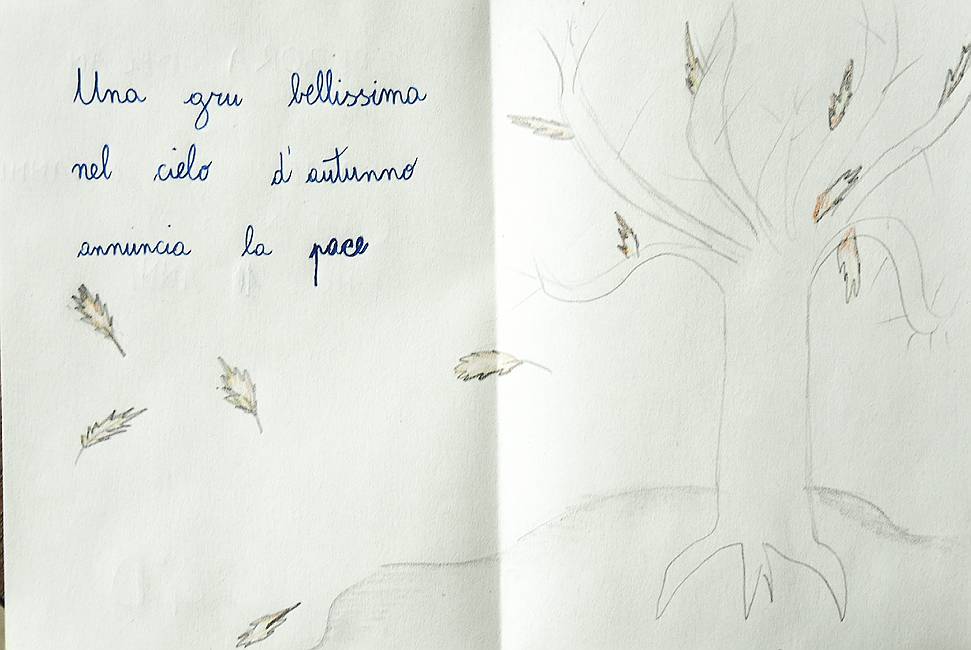 Una gru bellissima
nel cielo d'autunno
annuncia la pace